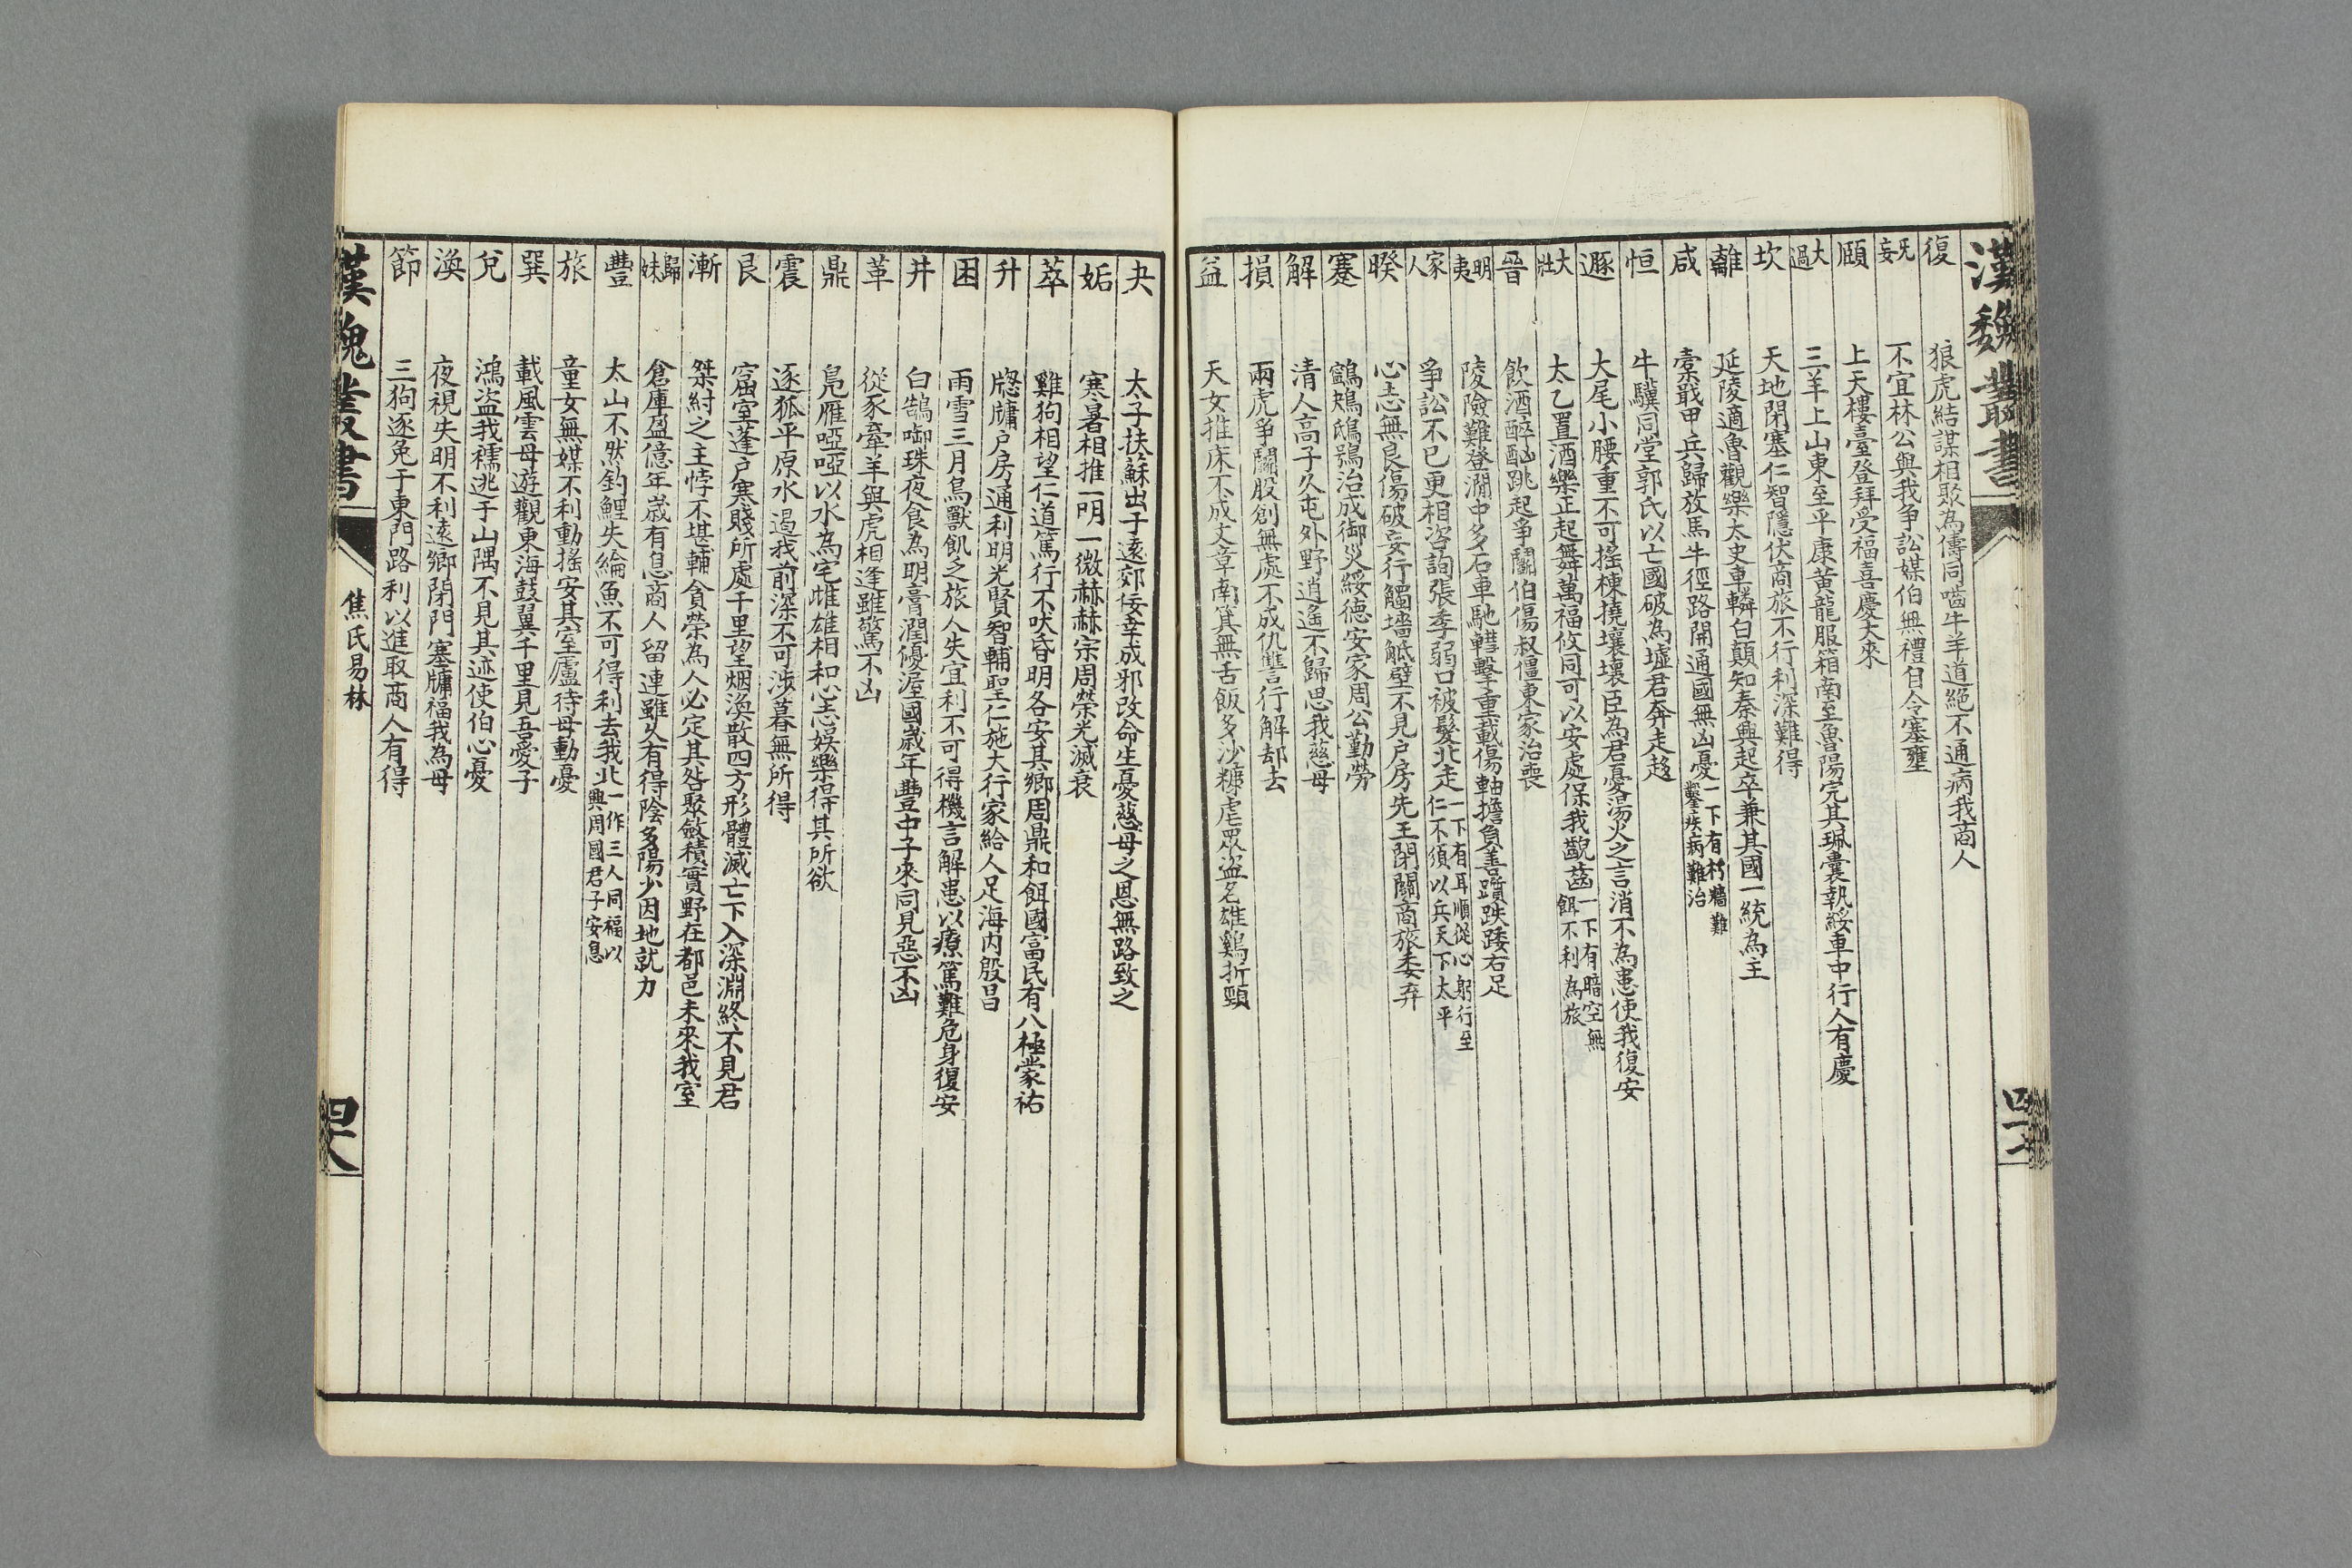 漢魏叢書
復 狼虎結謀相聚為儔同嚙牛羊道絕不通病我商人
无妄 不宜林公與我爭訟媒伯無禮自令塞壅
頤 上天樓臺登拜受福喜慶大來
大過 三羊上山東至平康黃龍服箱南至魯陽完其珮囊執綏車中行人有慶
坎 天地閉塞仁智隱伏商旅不行利深難得
離 延陵適魯觀樂太史車轔白顛知秦興起卒兼其國一統為主
咸 櫜戢甲兵歸放馬牛徑路開通國無凶憂一下有朽牆難鑿疾病難治
恒 牛驥同堂郭氏以亡國破為墟君奔走趍
遯 大尾小腰重不可搖棟撓壞壞臣為君憂湯火之言消不為患使我復安
大壯 太乙置酒樂正起舞萬福攸同可以安處保我齯齒一下有暗空無餌不利為旅
晉 飲酒醉酗跳起爭鬭伯傷叔僵東家治喪
明夷 陵險難登澗中多石車馳轊擊重載傷軸擔負善躓跌踒右足
家人 爭訟不已更相咨詢張季弱口被髮北走一下有耳順從心躬行至仁不須以兵天下太平
睽 心志無良傷破妄行觸墻觝壁不見戶房先王閉關商旅委弃
蹇 鸋鴂鴟鴞治成御災綏德安家周公勤勞
解 清人高子久屯外野逍遙不歸思我慈母
損 兩虎爭鬭股創無處不成仇讐行解却去
益 天女推床不成文章南箕無舌飯多沙糠虐眾盜名雄鷄折頸
四十七
夬 太子扶蘇出于遠郊佞幸成邪改命生憂慈母之恩無路致之
姤 寒暑相推一明一微赫赫宗周榮光滅衰
萃 雞狗相望仁道篤行不吠昏明各安其鄉周鼎和餌國富民有八極蒙祐
升 牕牖戶房通利明光賢智輔聖仁施大行家給人足海內殷昌
困 雨雪三月鳥獸飢乏旅人失宜利不可得機言解患以療篤難危身復安
井 白鵠啣珠夜食為明膏潤優渥國歲年豐中子來同見惡不凶
革 從豕牽羊與虎相逢雖驚不凶
鼎 鳧雁啞啞以水為宅雌雄相和心志娛樂得其所欲
震 逐狐平原水過我前深不可涉暮無所得
艮 窟室蓬戶寒賤所處千里望烟渙散四方形體滅亡下入深淵終不見君
漸 桀紂之主悖不堪輔貪榮為人必定其咎聚斂積實野在都邑未來我室
歸妹 倉庫盈億年歲有息商人留連雖久有得陰多陽少因地就力
豐 太山不然釣鯉失綸魚不可得利去我北一作三人同福以興周國君子安息
旅 童女無媒不利動搖安其室廬待母動憂
巽 載風雲母遊觀東海鼓翼千里見吾愛子
兌 鴻盜我襦逃于山隅不見其迹使伯心憂
渙 夜視失明不利遠鄉閉門塞牖福我為母
節 三狗逐兔于東門路利以進取商人有得
漢魏叢書
焦氏易林
四十八